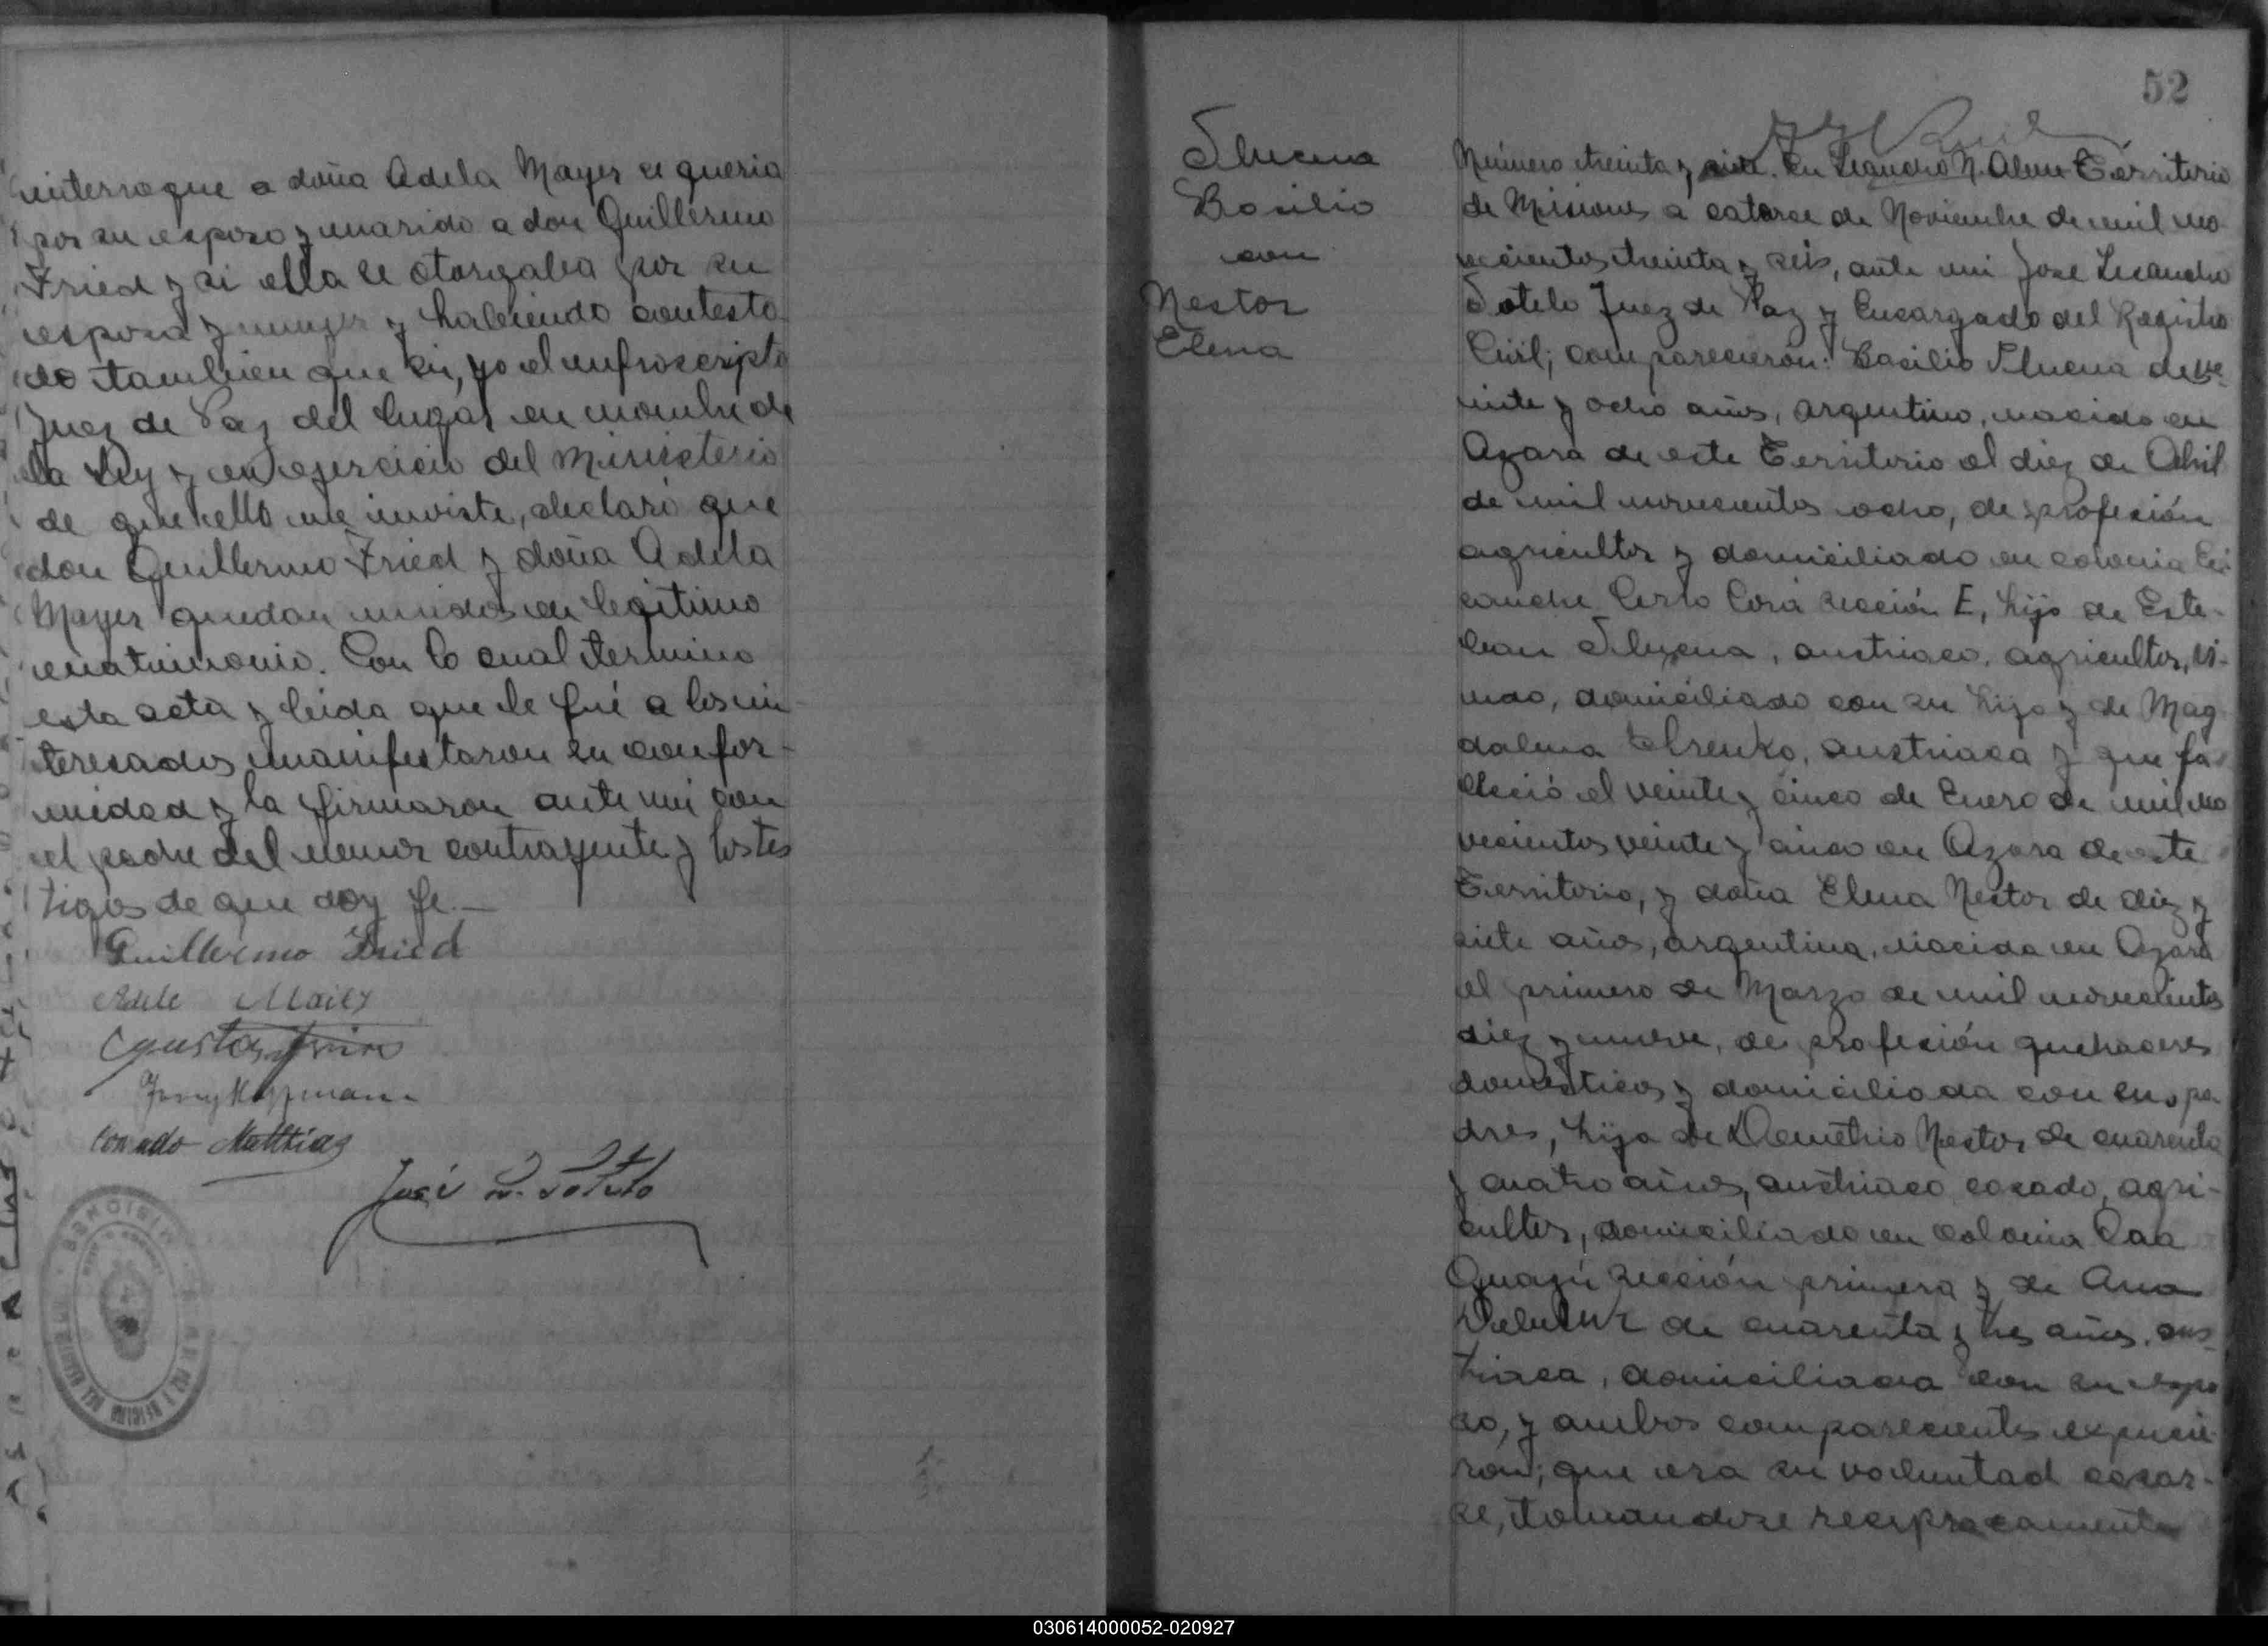 interrogue a doña Adela Mayer si queria
por su esposo y marido a don Guillermo
Fried y si ella se otorgaba por su
esposa y mujer y habiendo contesta-
do tambien que si, yo el infrascripto
Juez de Paz del lugar en nombre de
la Ley y en ejercicio del Ministerio
de que ello me inviste, declaro que
don Guillermo Fried y doña Adela
Mayer quedan unidos en legitimo
matrimonio. Con lo cual termino
esta acta y leida que le fué a los in-
teresados manifestaron su confor-
midad y la firmaron ante mi con
el padre del menor contrayente y los tes
tigos de que doy fe.—
Guillermo Fried
Adele
Conrado Matthias
José L. Sotelo
MISIONES
52
Basilio
con
Nestor
Elena
Número treinta y siete. En Leandro N. Alem Territorio
de Misiones a catorce de Noviembre de mil no
vecientos treinta y seis, ante mi Jose Leandro
Sotelo Juez de Paz y Encargado del Registro
Civil; comparecieron: Basilio de ve
inte y ocho años, argentino, nacido en
Azara de este Territorio el diez de Abril
de mil novecientos ocho, de profesión
agricultor y domiciliado en colonia
Cerro Corá sección E, hijo de Este-
ban austriaco, agricultor, vi-
udo, domiciliado con su hijo y de Mag
dalena austriaca y que fa
lleció el veinte y cinco de Enero de mil no
vecientos veinte y cinco en Azara de este
Territorio, y doña Elena Nestor de diez y
siete años, argentina, nacida en Azara
el primero de Marzo de mil novecientos
diez y nueve, de profesión quehaceres
domesticos y domiciliada con sus pa
dres, hija de Demetrio Nestor de cuarenta
y cuatro años, austriaco casado, agri-
cultor, domiciliado en colonia Caa
Guazú sección primera y de Ana
de cuarenta y tres años, aus-
triaca, domiciliada con su espo
so, y ambos comparecientes expusie
ron; que era su voluntad casar-
se, tomandose reciprocamente
030614000052-020927